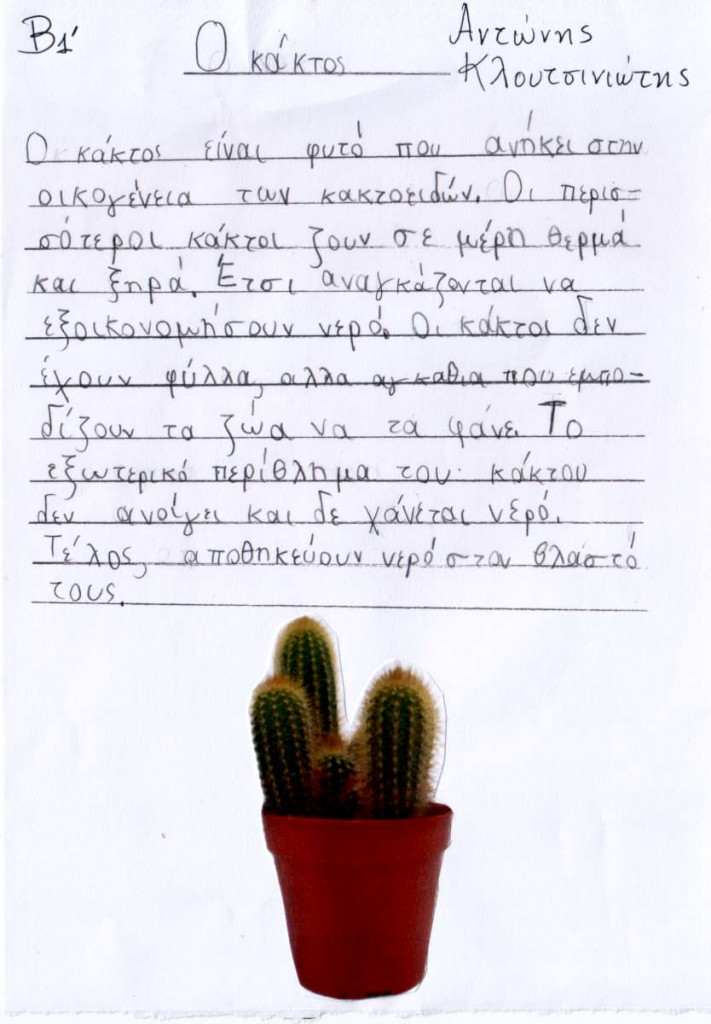 Β1'
Ο κάκτος
Αντώνης
Κλουτσινιώτης
Ο κάκτος είναι φυτό που ανήκει στην
οικογένεια των κακτοειδών. Οι περισ=
σότεροι κάκτοι ζουν σε μέρη θερμά
και ξηρά. Έτσι αναγκάζονται να
εξοικονομήσουν νερό. Οι κάκτοι δεν
έχουν φύλλα, αλλα αγκαθια που εμπο=
δίζουν τα ζώα να τα φάνε. Το
εξωτερικό περίβλημα του κάκτου
δεν ανοίγει και δε χάνεται νερό.
Τέλος, αποθηκεύουν νερό στον βλαστό
τους.